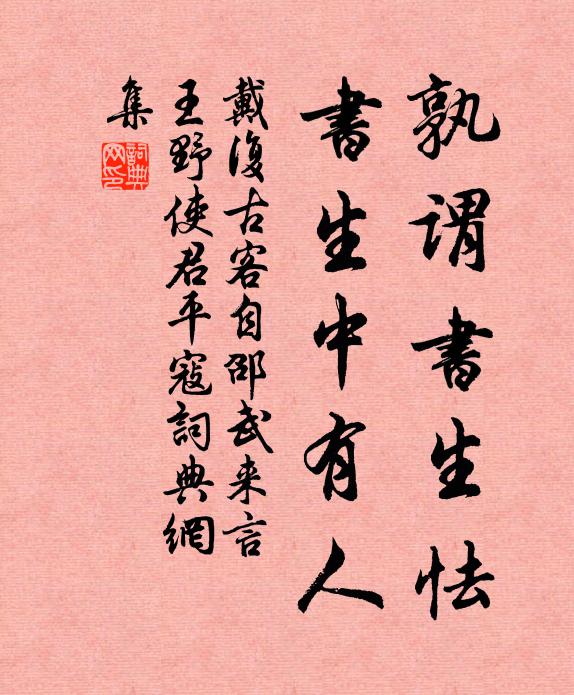 孰谓書生怯
書生中有人
戴復古客自邵武来言
王野使君平寇詞典網
集
詞典網印